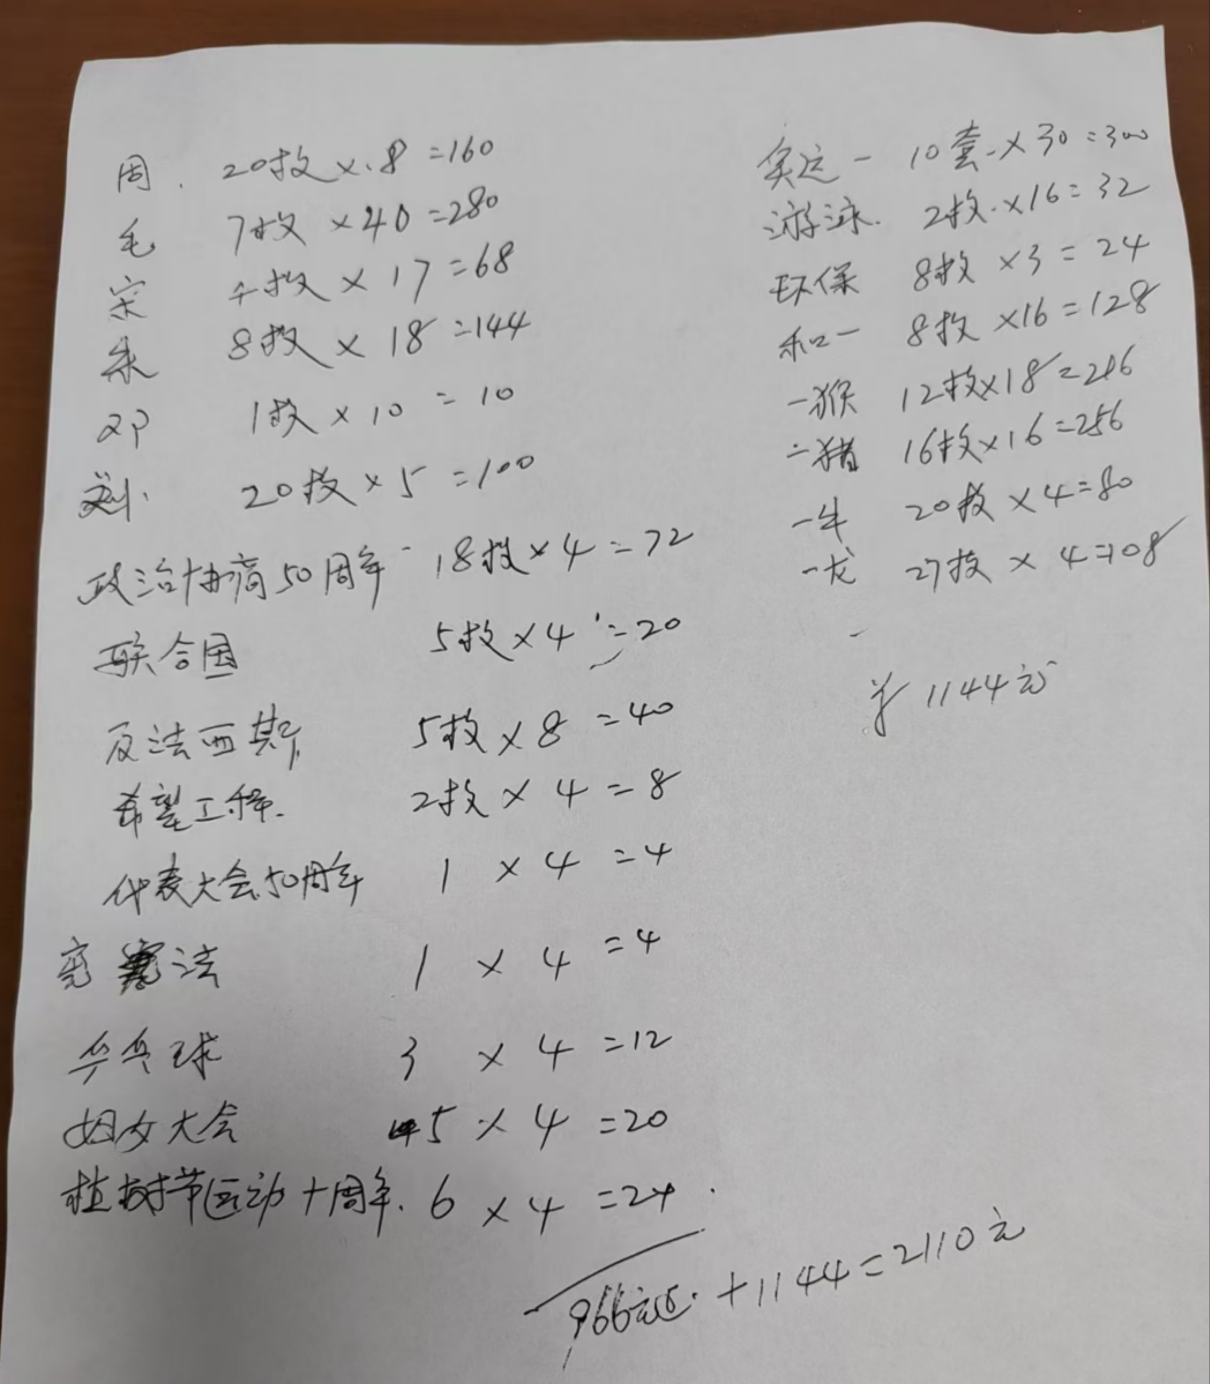 周. 20枚×8=160
毛 7枚×40=280
宋 4枚×17=68
朱 8枚×18=144
邓 1枚×10=10
刘 20枚×5=100
政治协商50周年 18枚×4=72
联合国 5枚×4=20
反法西斯 5枚×8=40
希望工程. 2枚×4=8
代表大会50周年 1×4=4
宪法 1×4=4
乒乓球 3×4=12
妇女大会 5×4=20
植树节运动十周年. 6×4=24.
966元 +1144=2110元
奥运一 10套×30=300
游泳. 2枚×16=32
环保 8枚×3=24
和一 8枚×16=128
一猴 12枚×18=216
二猪 16枚×16=256
一牛 20枚×4=80
一龙 27枚×4=108
¥1144元